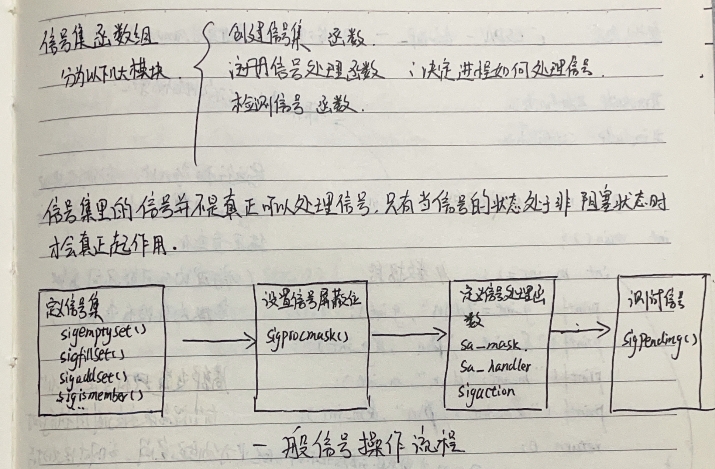 信号集函数组
分为以下几大模块.
创建信号集 函数.
注册信号处理函数 : 决定进程如何处理信号.
检测信号 函数.
信号集里的信号并不是真正可以处理信号,只有当信号的状态处于非阻塞状态时
才会真正起作用.
定义信号集
sigemptyset()
sigfillset()
sigaddset()
sigismember()
设置信号屏蔽位
sigprocmask()
定义信号处理函
数
sa_mask.
sa_handler
sigaction
测试信号
sigpending()
一般信号操作流程